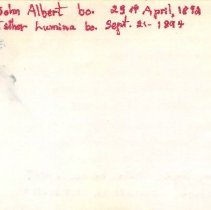 John Albert bo. 29th April, 1892
Esther Lumina bo. Sept. 21 - 1894